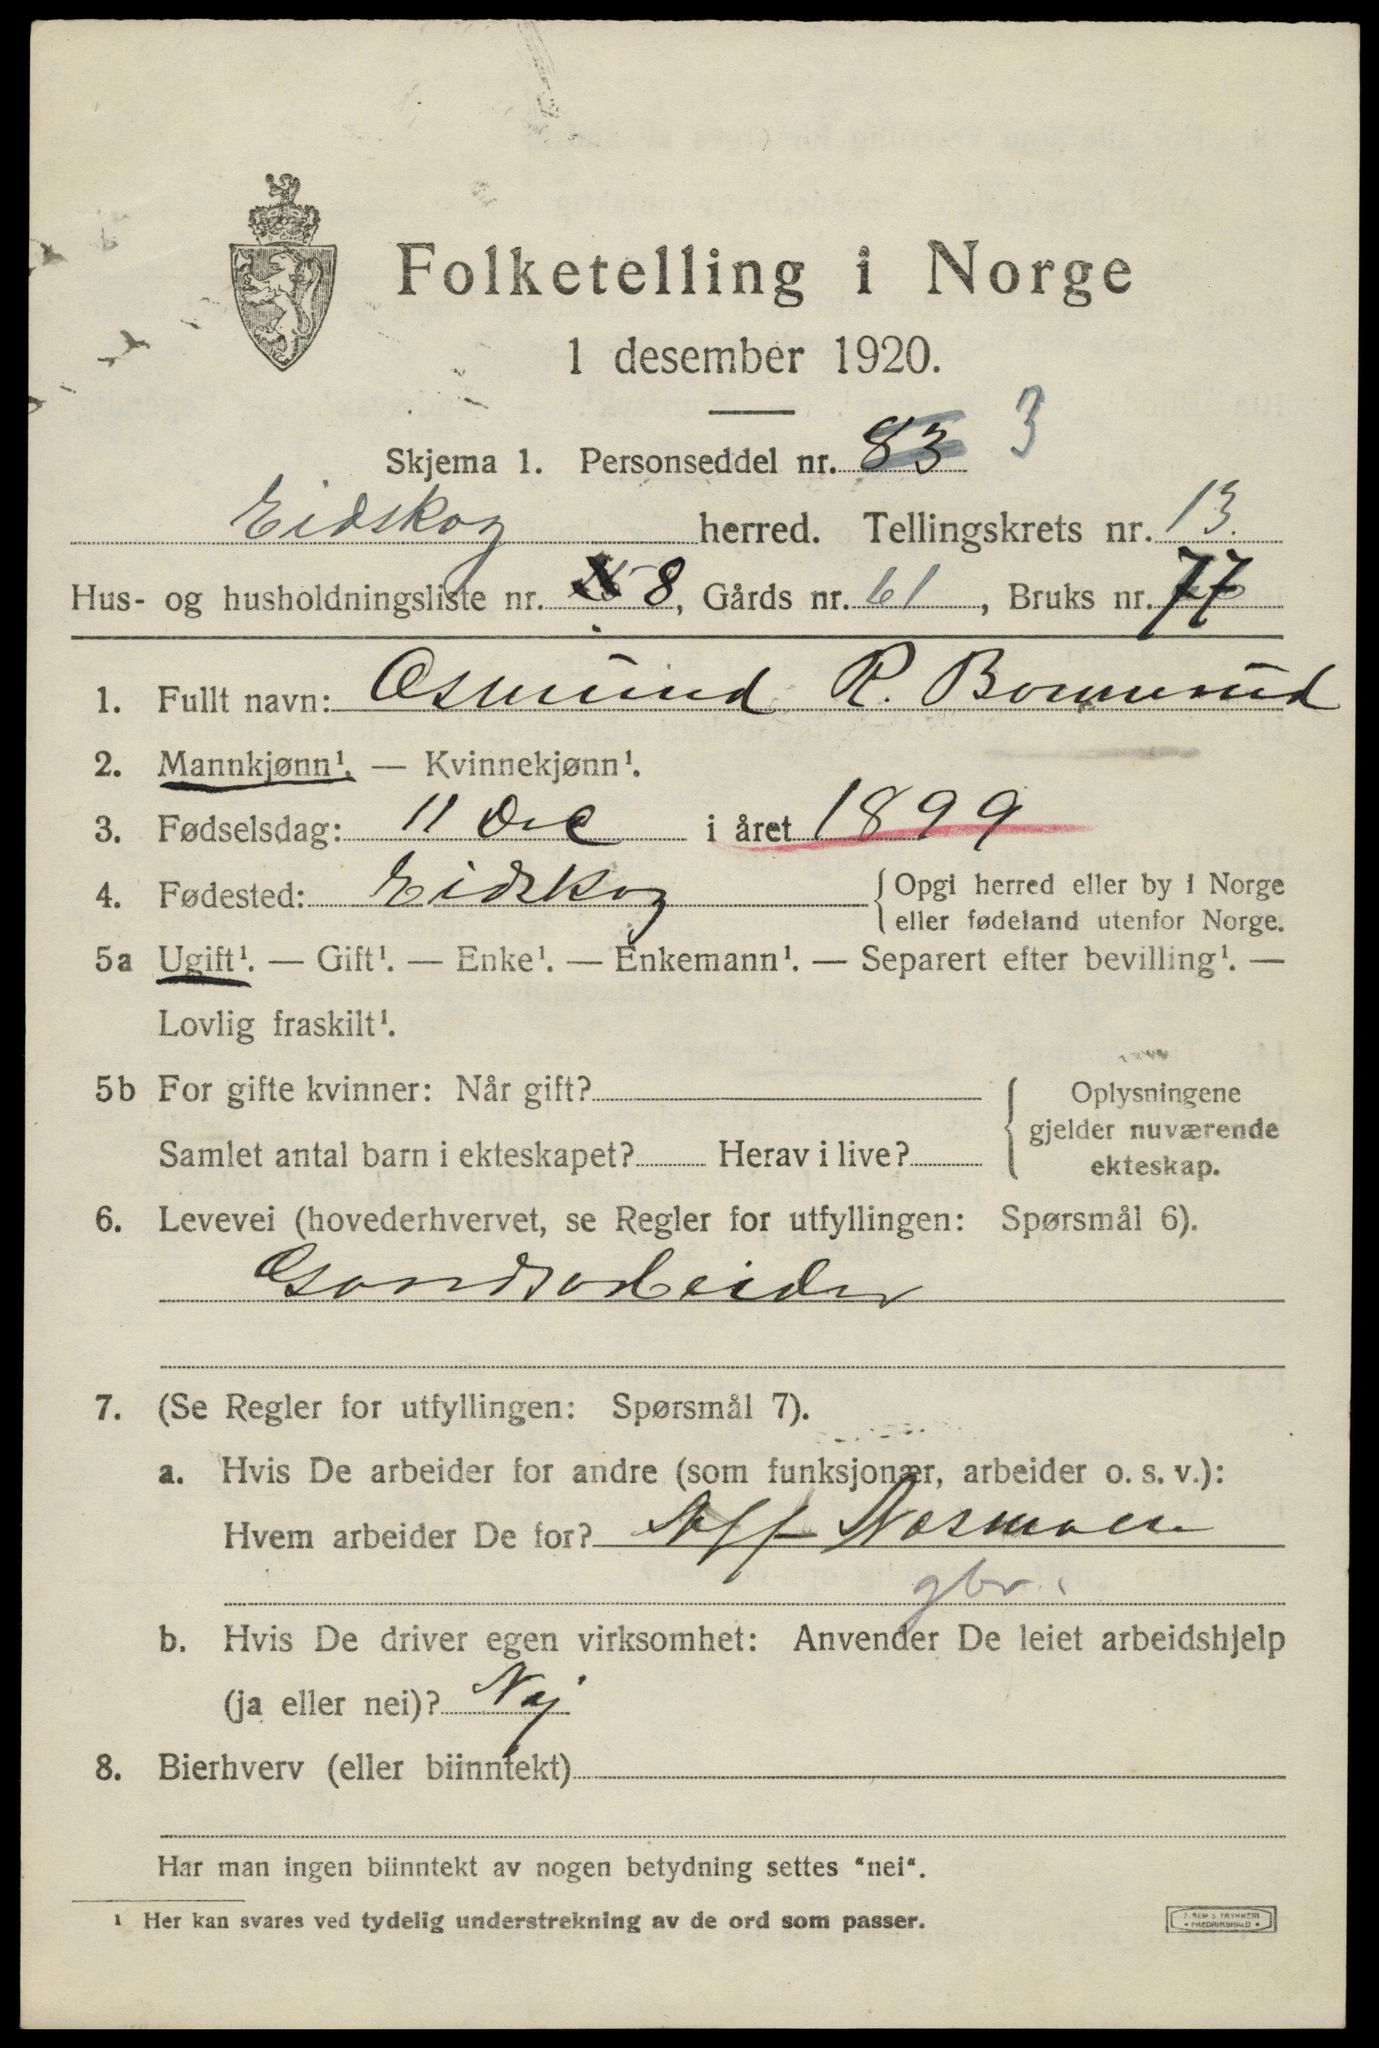 Folketelling i Norge
1 desember 1920.
Skjema 1. Personseddel nr. 83 3
Eidskog herred. Tellingskrets nr. 13.
Hus- og husholdningsliste nr. 8, Gårds nr. 61, Bruks nr. 77
1. Fullt navn: Osmund R. Bommerud
2. Mannkjønn¹. — Kvinnekjønn¹.
3. Fødselsdag: 11 Dec i året 1899
4. Fødested: Eidskog { Opgi herred eller by i Norge
eller fødeland utenfor Norge.
5a Ugift¹. — Gift¹. — Enke¹. — Enkemann¹. — Separert efter bevilling¹. —
Lovlig fraskilt¹.
5b For gifte kvinner: Når gift? { Oplysningene
gjelder nuværende
Samlet antal barn i ekteskapet? Herav i live?
ekteskap.
6. Levevei (hovederhvervet, se Regler for utfyllingen: Spørsmål 6).
Gardsarbeider
7. (Se Regler for utfyllingen: Spørsmål 7).
a. Hvis De arbeider for andre (som funksjonær, arbeider o. s. v.):
Hvem arbeider De for? Næsmoen
gbr.
b. Hvis De driver egen virksomhet: Anvender De leiet arbeidshjelp
(ja eller nei)? Nej
8. Bierhverv (eller biinntekt)
Har man ingen biinntekt av nogen betydning settes "nei".
¹ Her kan svares ved tydelig understrekning av de ord som passer.